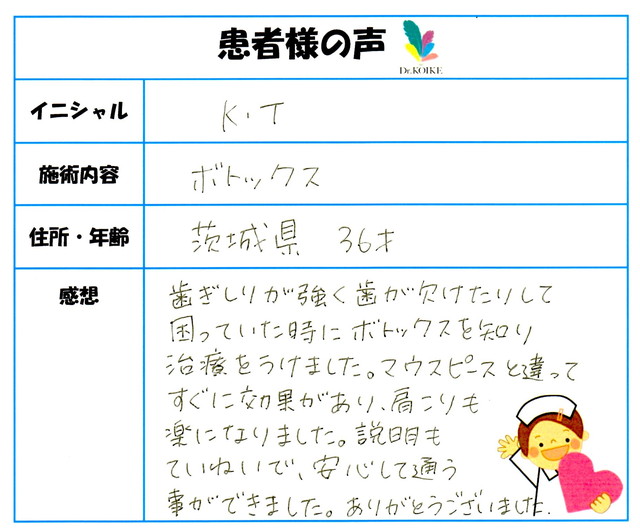 患者様の声
Dr.KOIKE
イニシャル K・T
施術内容 ボトックス
住所・年齢 茨城県 36才
感想
歯ぎしりが強く歯が欠けたりして
困っていた時にボトックスを知り
治療をうけました。マウスピースと違って
すぐに効果があり、肩こりも
楽になりました。説明も
ていねいで、安心して通う
事ができました。ありがとうございました.